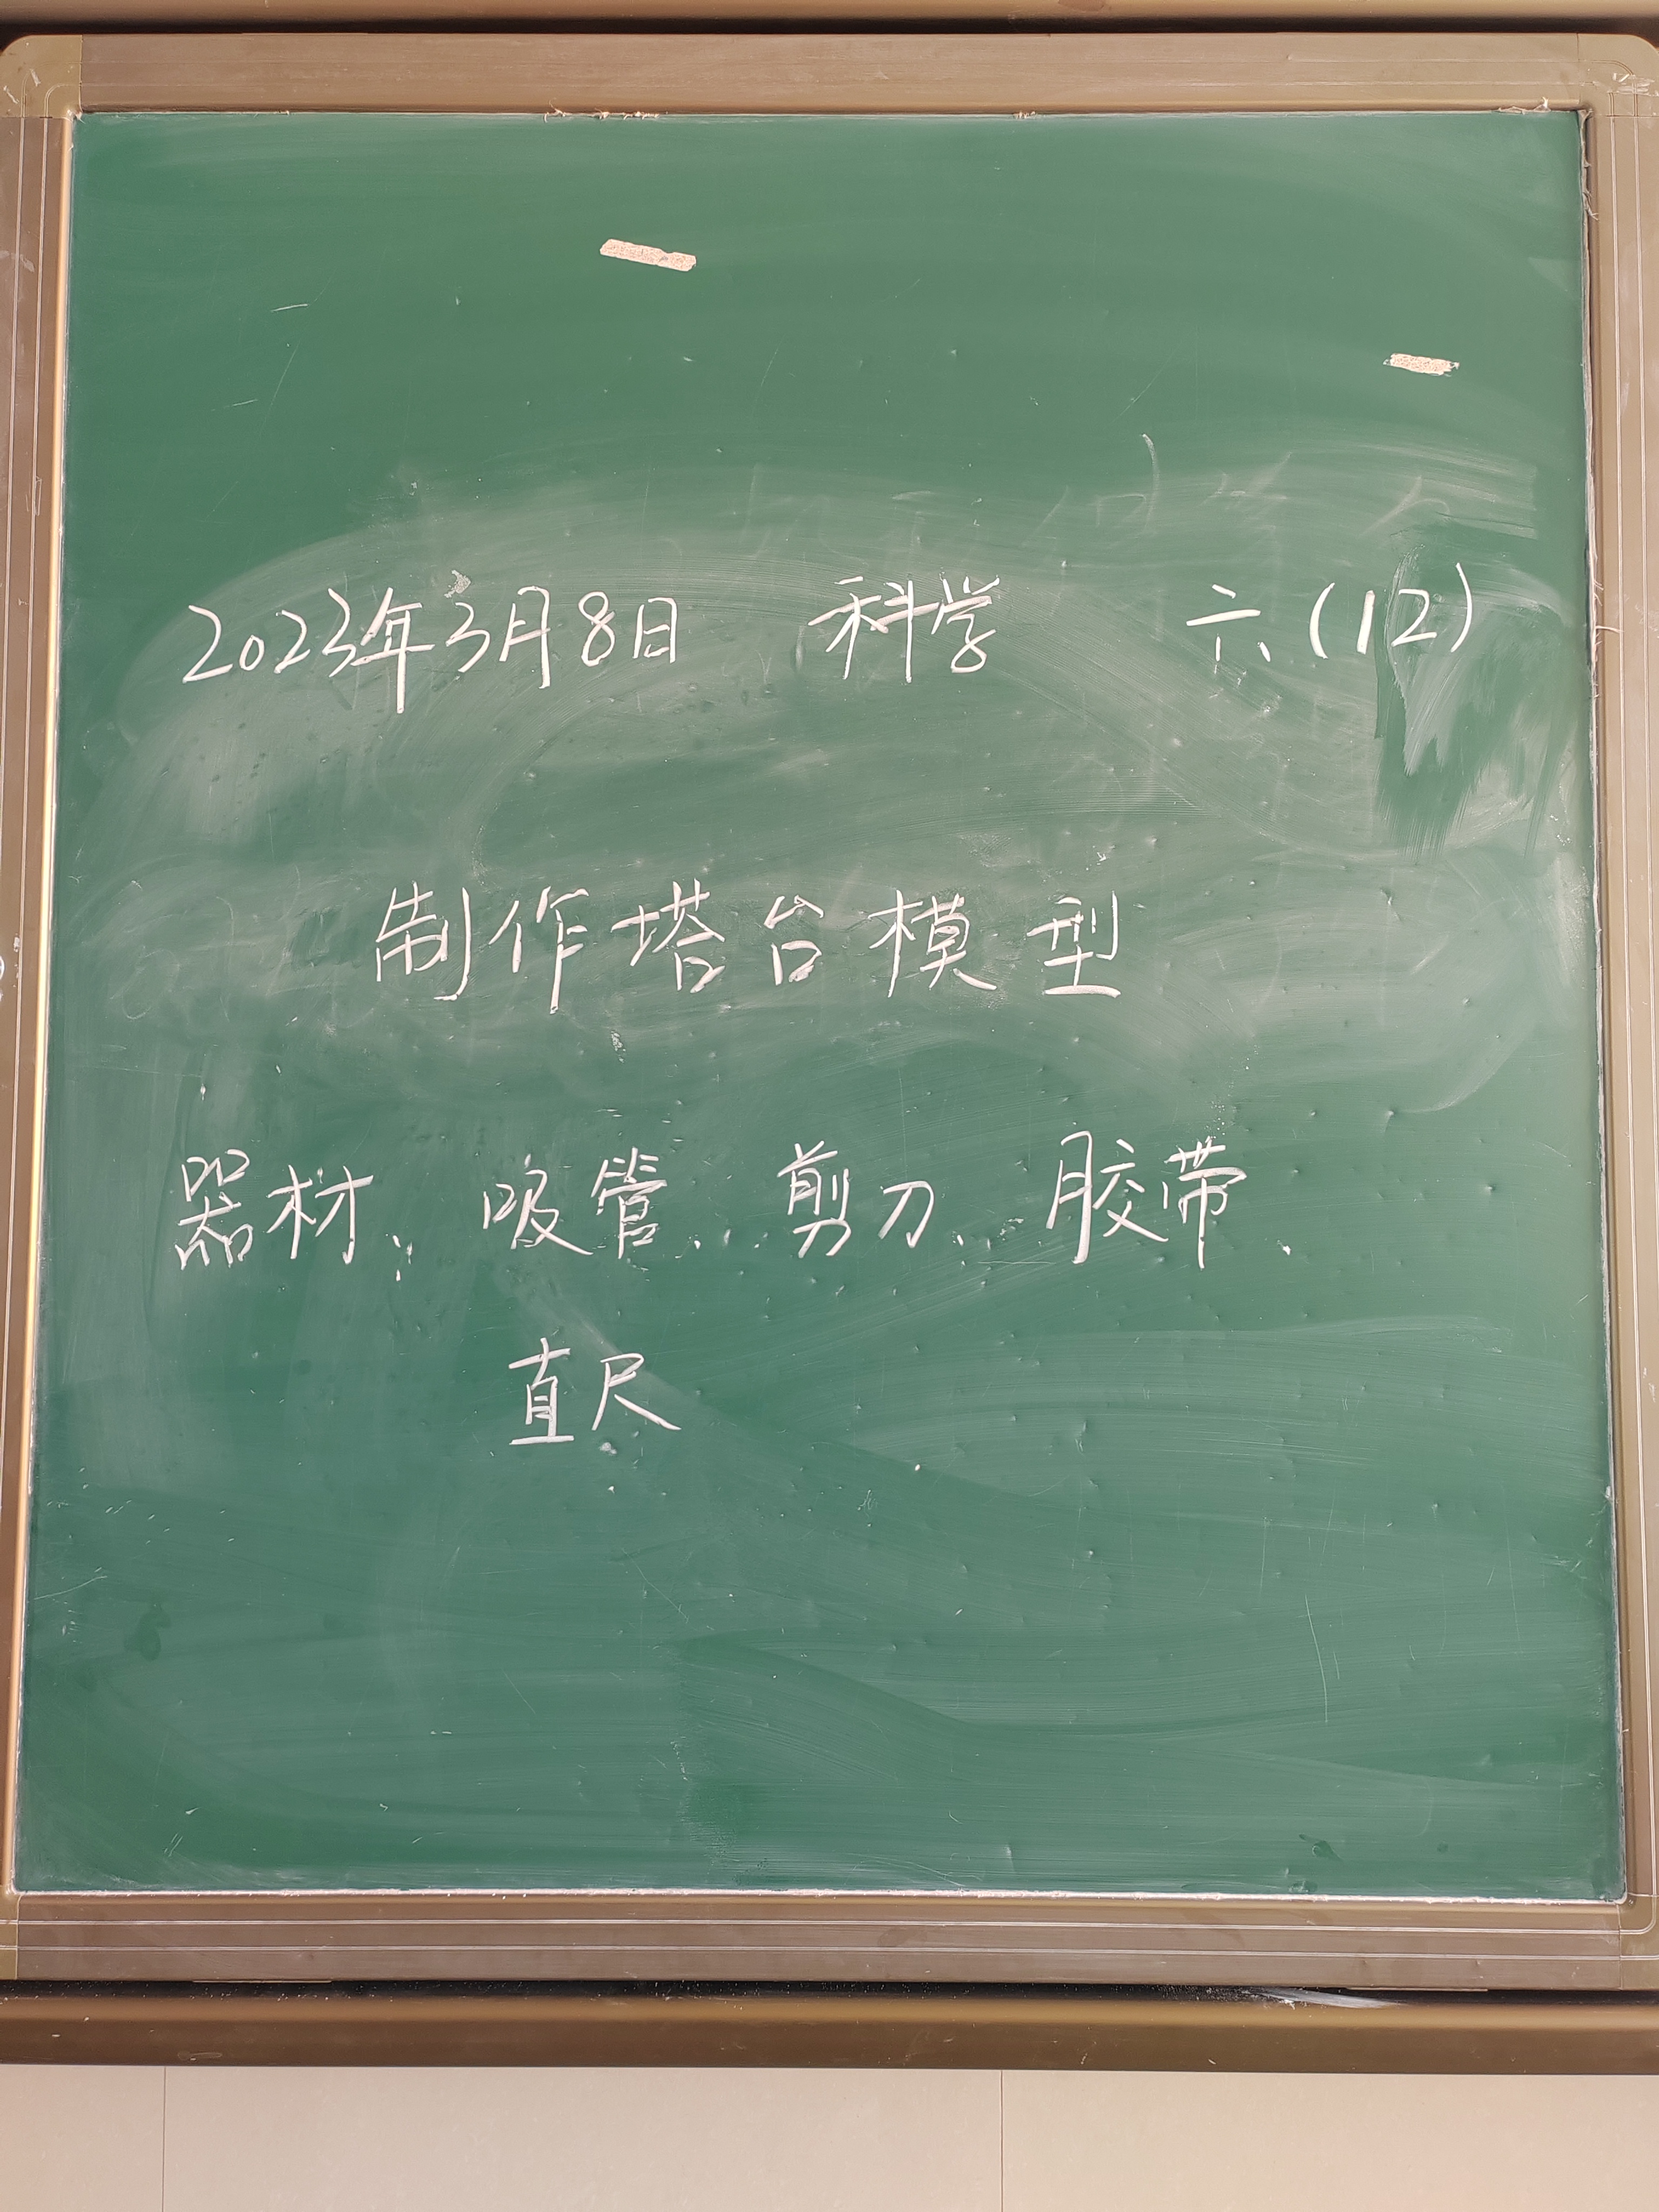 2023年3月8日 科学 六(12)
制作塔台模型
器材：吸管、剪刀、胶带、
直尺